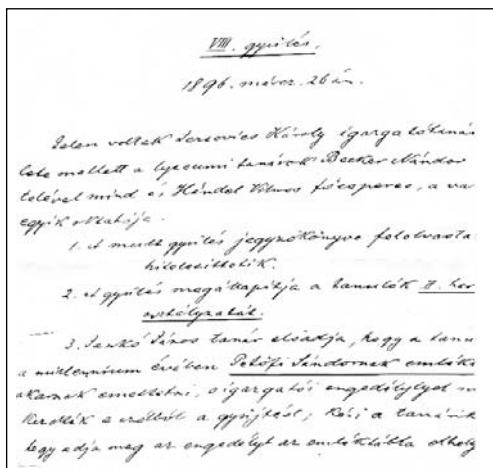 VIII. gyülés.
1896. márcz. 26 án.
Jelen voltak Károly igazgató
mellett a lyceumi tanárok Becker Nándor
telével mind és Händel Vilmos főesperes, a va
egyik oktatója.
1. A mult gyülés jegyzőkönyve felolvasta
hitelesíttetik.
2. A gyülés megállapítja a tanulók II. 
osztályzatát.
3. János tanár előadja, hogy a tanu
a millennium évében Petőfi Sándornak emléke
akarnak emeltetni, s igazgatói engedélylyel m
kezdték e czélból a gyüjtést; kéri a tanárik
hogy adja meg az engedélyt az emléktábla elhely